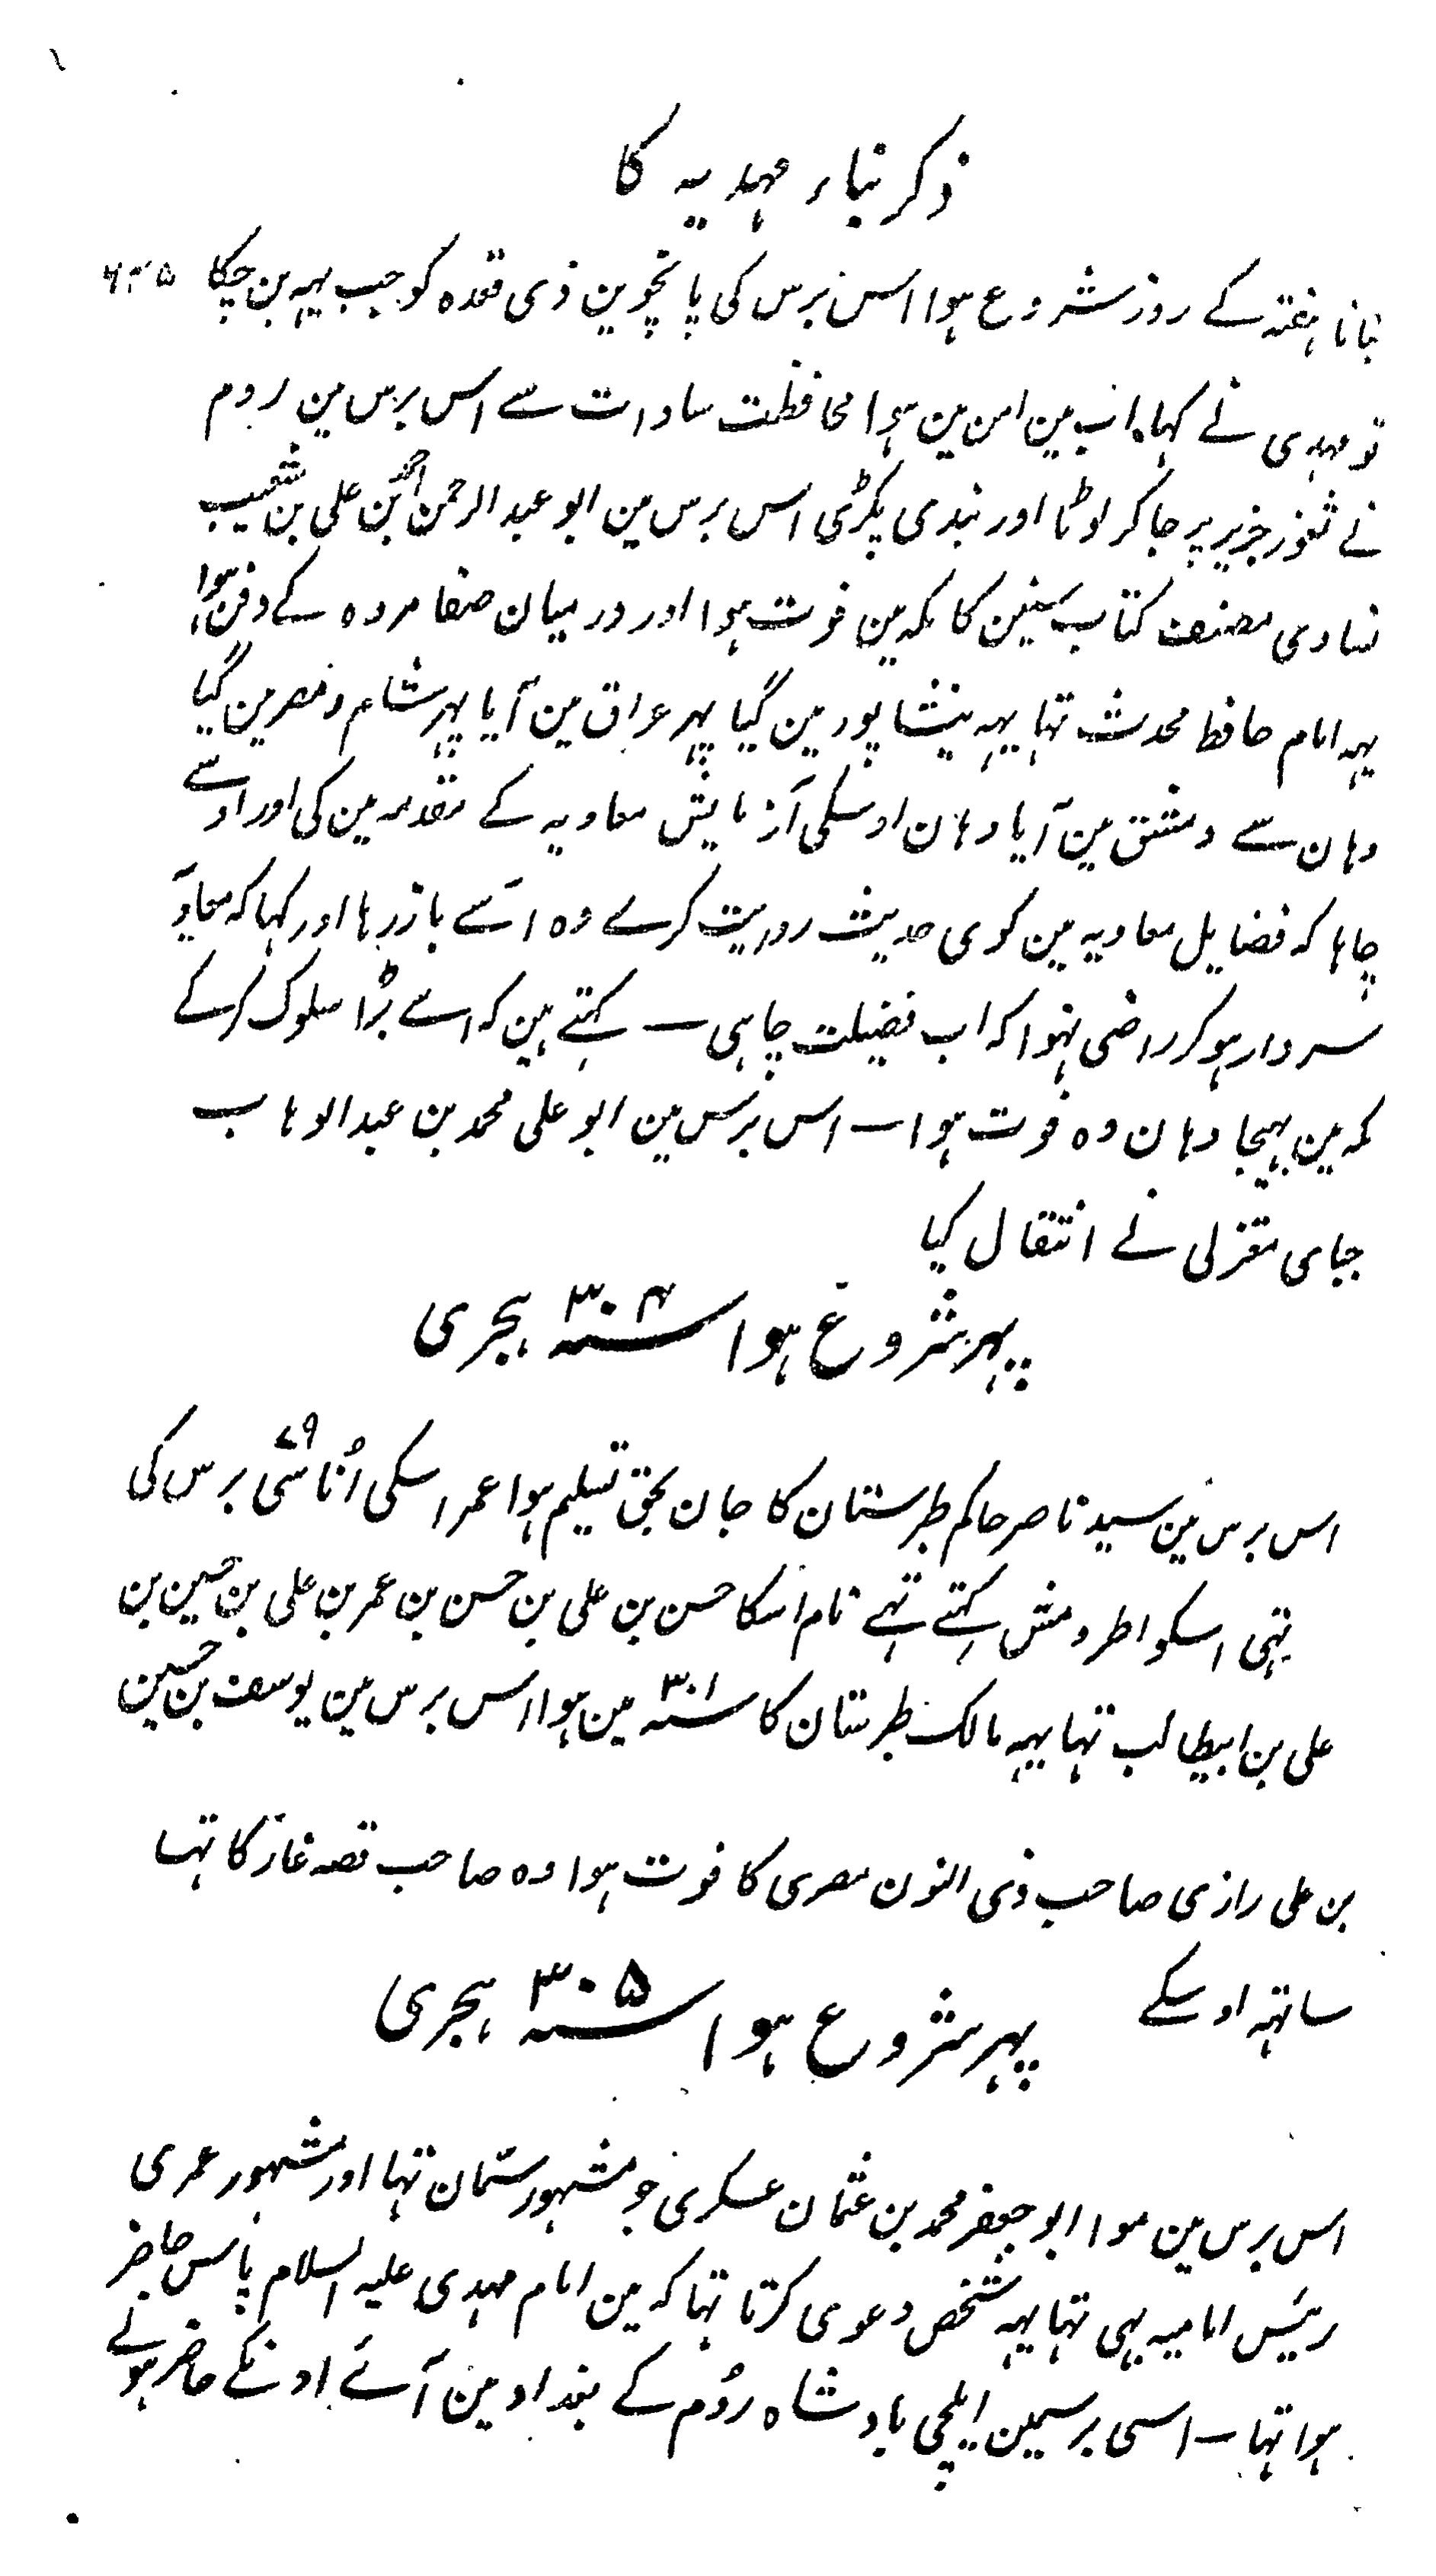 ذکر بناء مہدیہ کا
بنانا ہفتہ کے روز شروع ہوا اس برس کی پانچوین ذی قعدہ کو جب یہہ بن چکا
تو مہدی نے کہا اب مین امن مین ہوا محافظت سادات سے اس برس مین روم
نے ثغور جزیر پر جا کر لوٹا اور بندی پکڑی اس برس مین ابو عبد الرحمن احمد بن علی بن شعیب
نساوی مصنف کتاب سنین کا مکہ مین فوت ہوا اور درمیان صفا مروہ کے دفن ہوا
یہہ امام حافظ محدث تہا یہہ نیشاپور مین گیا پہر عراق مین آیا پہر شام و مصر مین گیا
وہان سے دمشق مین آیا وہان اوسکی آزمایش معاویہ کے مقدمہ مین کی اور اوسے
چاہا کہ فضایل معاویہ مین کوی حدیث روایت کرے وہ اسے باز رہا اور کہا کہ معاویہ
سردار ہو کر راضی نہوا کہ اب فضیلت چاہی ــ کہتے ہین کہ اسے بڑا سلوک کر کے
مکہ مین بہیجا وہان وہ فوت ہوا ــ اس برس مین ابو علی محمد بن عبد الوہاب
جبای معتزلی نے انتقال کیا
پہر شروع ہوا سنہ ۳۰۴ ہجری
اس برس مین سید ناصر حاکم طبرستان کا جان بحق تسلیم ہوا عمر اسکی اُناسٹی ۷۹ برس کی
تہی اسکو اطروش کہتے تہے نام اسکا حسن بن علی بن حسن بن عمر بن علی بن حسین بن
علی بن ابیطالب تہا یہہ مالک طبرستان کا سنہ ۳۰۱ مین ہوا اس برس مین یوسف بن حسین
بن علی رازی صاحب ذی النون مصری کا فوت ہوا وہ صاحب قصہ غار کا تہا
ساتہہ اوسکے
پہر شروع ہوا سنہ ۳۰۵ ہجری
اس برس مین موا ابو جعفر محمد بن عثمان عسکری جو مشہور سمان تہا اور مشہور عمری
رئیس امامیہ بہی تہا یہہ شخص دعوی کرتا تہا کہ مین امام مہدی علیہ السلام پاس حاضر
ہوا تہا ــ اسی برسمین ایلچی بادشاہ رُوم کے بغداد مین آئے اونکے حاضر ہونے